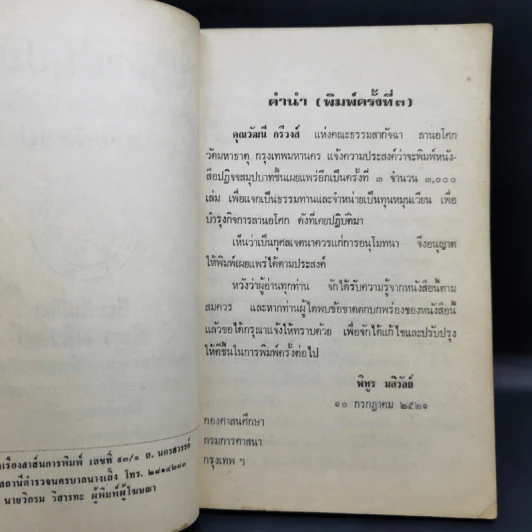 คำนำ (พิมพ์ครั้งที่ ๓)
คุณวัฒนี กรีวงส์ แห่งคณะธรรมสากัจฉา ลานอโศก
วัดมหาธาตุ กรุงเทพมหานคร แจ้งความประสงค์ว่าจะพิมพ์หนัง-
สือปฏิจจสมุปบาทขึ้นเผยแพร่อีกเป็นครั้งที่ ๓ จำนวน ๓,๐๐๐
เล่ม เพื่อแจกเป็นธรรมทานและจำหน่ายเป็นทุนหมุนเวียน เพื่อ
บำรุงกิจการลานอโศก ดังที่เคยปฏิบัติมา
เห็นว่าเป็นกุศลเจตนาควรแก่การอนุโมทนา จึงอนุญาต
ให้พิมพ์เผยแพร่ได้ตามประสงค์
หวังว่าผู้อ่านทุกท่าน จักได้รับความรู้จากหนังสือนี้ตาม
สมควร และหากท่านผู้ใดพบข้อขาดตกบกพร่องของหนังสือนี้
แล้วขอได้กรุณาแจ้งให้ทราบด้วย เพื่อจักได้แก้ไขและปรับปรุง
ให้ดีขึ้นในการพิมพ์ครั้งต่อไป
พิทูร มลิวัลย์
๑๐ กรกฎาคม ๒๕๒๑
กองศาสนศึกษา
กรมการศาสนา
กรุงเทพ ฯ
เรืองสาส์นการพิมพ์ เลขที่ ๙๓/๑ ถ. นครสวรรค์
สถานีตำรวจนครบาลนางเลิ้ง โทร. ๒๘๑๔๒๘๓
นายวิกรม วิสารทะ ผู้พิมพ์ผู้โฆษณา